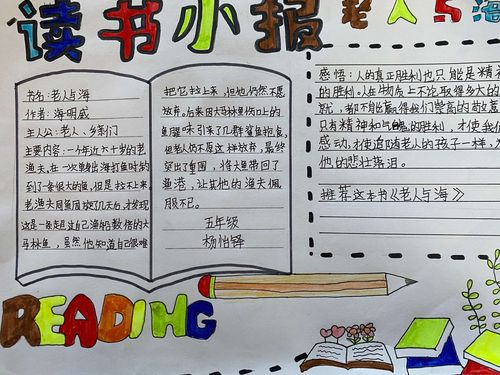 读书小报
老人与海
书名:老人与海
作者:海明威
主人公:老人、乡亲们
主要内容:一个年近六十岁的老
渔夫,在一次单身出海打鱼时钓
到了一条很大的鱼,但是拉不上来。
老渔夫同鱼周旋了几天后,才发现
这是一条超过自己渔船数倍的大
马林鱼,虽然他知道自己很难
把它拉上来,但他仍然不愿
放弃。后来因大马林鱼伤口上的
鱼腥味引来了几群鲨鱼抢食,
但老人仍不愿这样放弃,最终
突出重围,将大鱼带回了
渔港,让其他的渔夫佩
服不已。
五年级
杨怡铎
感悟:人的真正胜利也只能是精神
的胜利。人在物质上不论取得多大的
就,都不能赢得我们崇高的敬意
只有精神和气魄的胜利,才使我们
感动,才使追随老人的孩子一样,为
他的悲壮落泪。
推荐这本书《老人与海》
READING